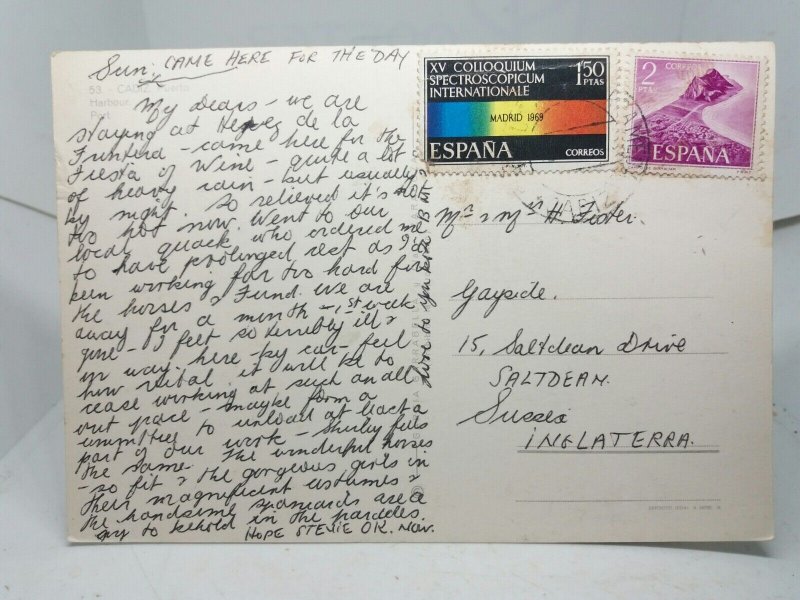 Sun, CAME HERE FOR THE DAY
53 - CADIZ. Puerta
Harbour
Port
My Dears - we are
staying at Herez de la
Frontera - came here for the
Fiesta of Wine - quite a lot
of heavy rain - but usually
by night. So relieved it's not
too hot now. Went to our
local quack who ordered me
to have prolonged rest as I'd
been working far too hard for
the horses & Fund. We are
away for a month - 1st week
gone - I felt so terribly ill &
in way here by car - feel
how vital it will be to
cease working at such an all
out pace - maybe form a
committee to unload at least a
part of our work - Shirley feels
the same. The wonderful horses
- so fit & the gorgeous girls in
their magnificent costumes &
the handsome spaniards are a
joy to behold in the parades.
HOPE STEVIE OK. Now.
love to you both
XV COLLOQUIUM
SPECTROSCOPICUM
INTERNATIONALE
1'50
PTAS
MADRID 1969
ESPAÑA
CORREOS
2
PTAS
CORREOS
ESPAÑA
Mr & Mrs H. Foster.
Gayside.
15, Saltdean Drive
SALTDEAN.
Sussex
INGLATERRA.